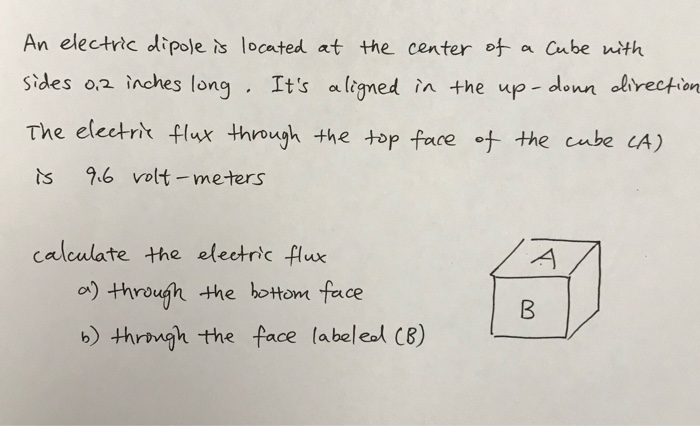 An electric dipole is located at the center of a Cube with
sides 0.2 inches long. It's aligned in the up-down direction
The electric flux through the top face of the cube (A)
is 9.6 volt-meters
calculate the electric flux
a) through the bottom face
b) through the face labeled (B)
A
B